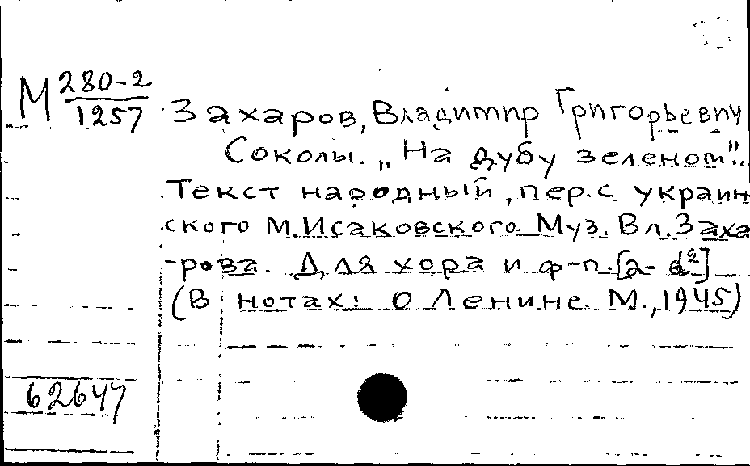 М 280-2
1257
Захаров, Владимир Григорьевич
Соколы. „На дубу зеленом"..
Текст народный, пер. с украин
ского М. Исаковского. Муз. Вл. Заха
-рова. Для хора и ф-п. [a- d²]
(В нотах: О Ленине. М., 1945)
62647